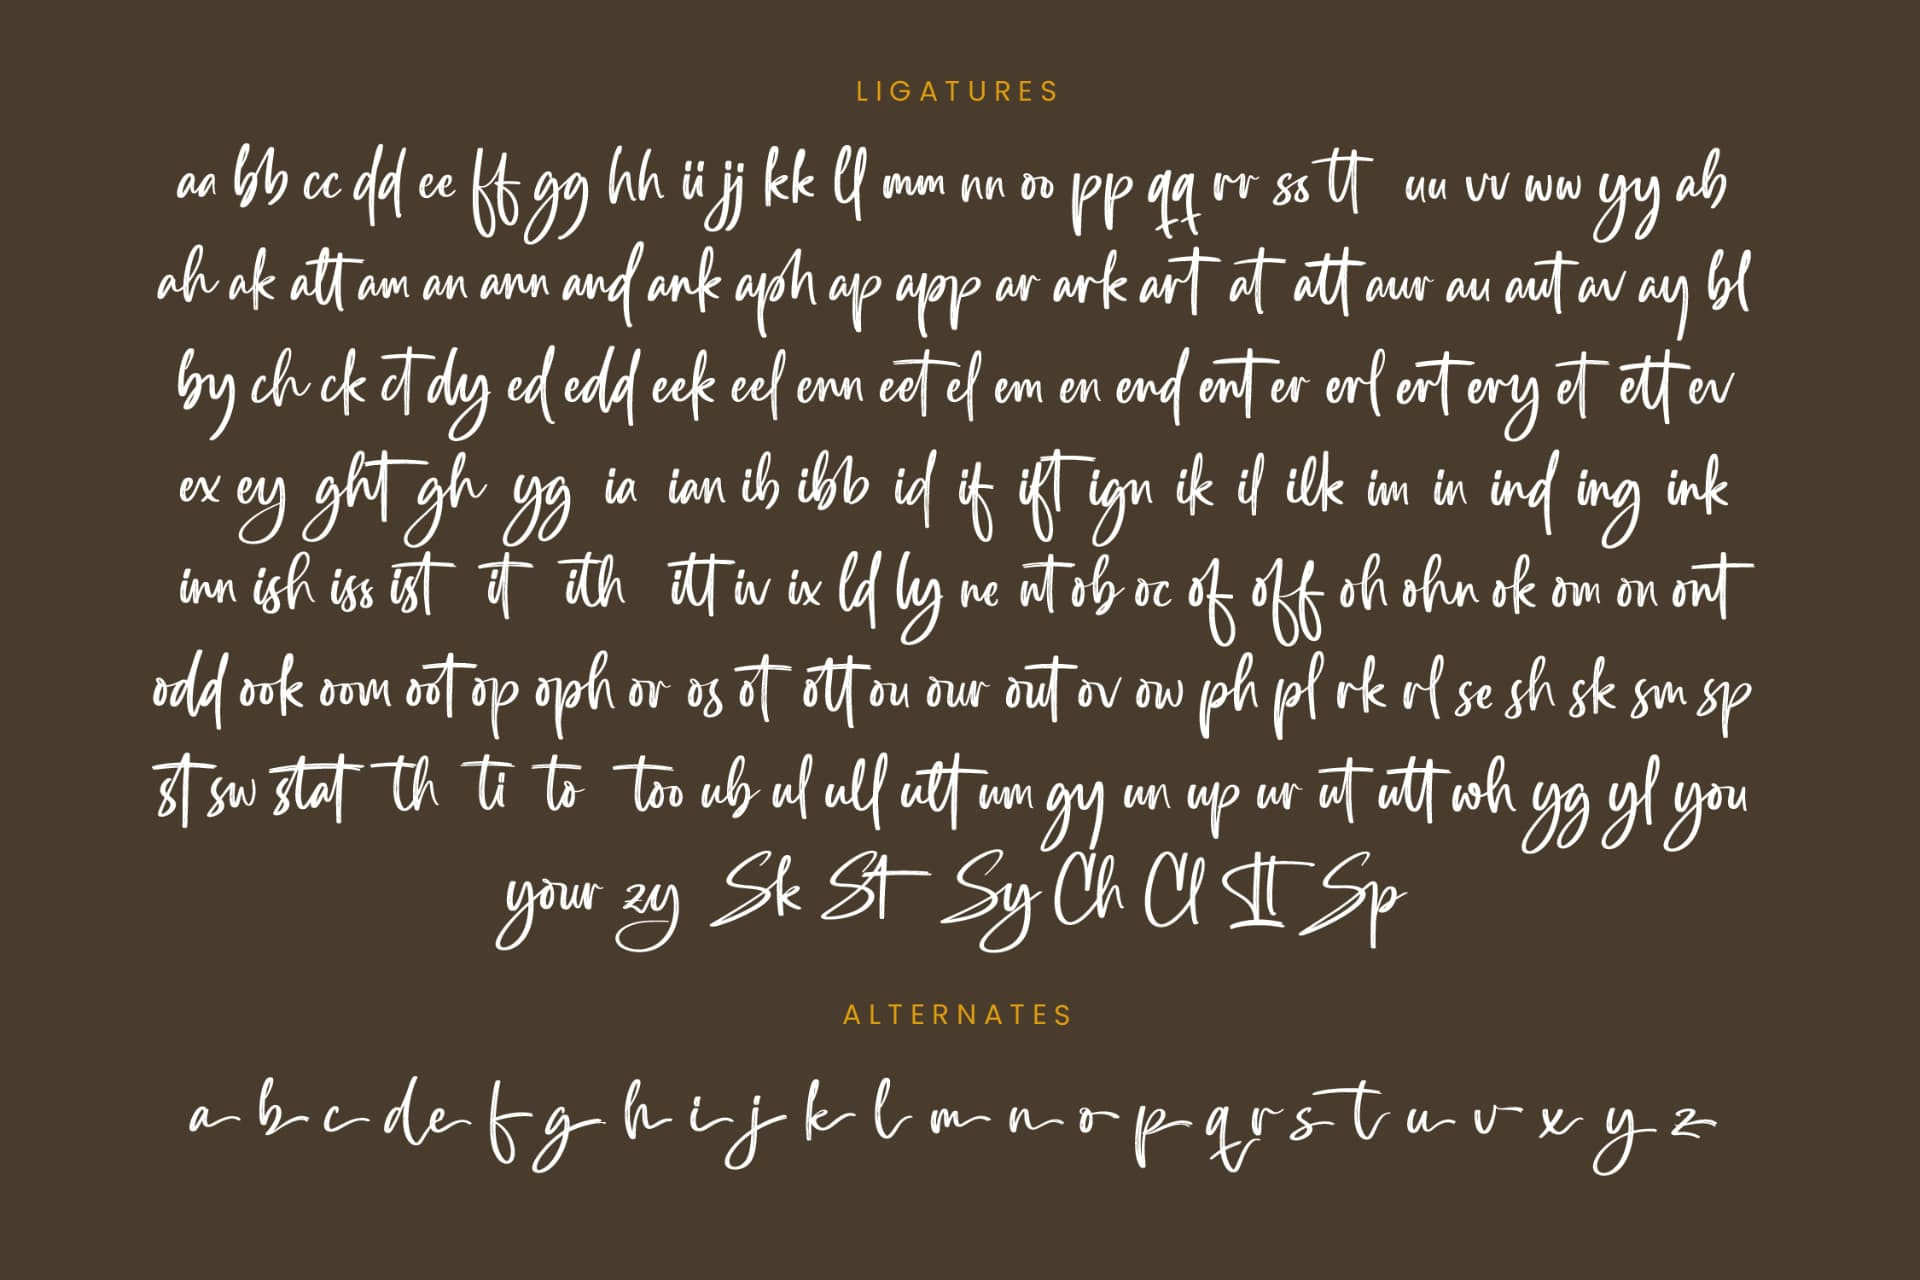 LIGATURES
aa bb cc dd ee ff gg hh ii jj kk ll mm nn oo pp qq rr ss tt uu vv ww yy ab
ah ak alt am an ann and ank aph ap app ar ark art at att aur au aut av ay bl
by ch ck ct dy ed edd eek eel enn eet el em en end ent er erl ert ery et ett ev
ex ey ght gh yg ia ian ib ibb id if ift ign ik il ilk im in ind ing ink
inn ish iss ist it ith itt iv ix ld ly ne nt ob oc of off oh ohn ok om on ont
odd ook oom oot op oph or os ot ott ou our out ov ow ph pl rk rl se sh sk sm sp
st sw stat th ti to too ub ul ull ult um gy un up ur ut utt wh yg yl you
your zy Sk St Sy Ch Cl It Sp
ALTERNATES
a b c d e f g h i j k l m n o p q r s t u v x y z